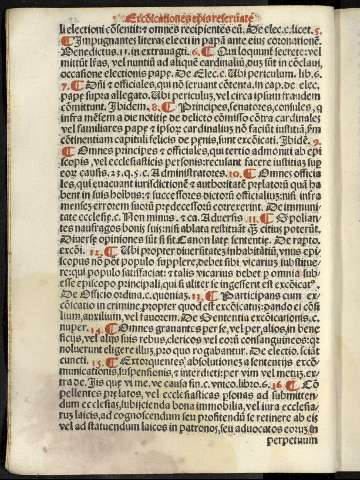 Excōicationes epīs reseruate
li electioni cōsentit: & omnes recipientes eū. De elec. c. licet. 5.
¶ Impugnantes literas electi in papā ante eius coronationē.
Benedictus. 11. in extrauagti. 6. ¶ Qui loquunt secrete: vel
mittūt lr̄as, vel nuntiū ad aliquē cardinaliū, dus sūt in cōclaui,
occasione electionis pape. De elec. c. Ubi periculum. lib. 6.
7. ¶ Dn̄i & officiales, qui nō seruant cōtenta. in cap. de elec.
pape supra allegato. Ubi periculum, vel circa ipsum fraudem
cōmittunt. Ibidem. 8. ¶ Principes, senatores, consules,
infra mēsem a die notitie de delicto cōmisso cōtra cardinales
vel familiares pape & ipsorū cardinaliū nō faciūt iustitiā, s̄m
cōtinentiam capituli felicis de penis, sunt excōicati. Ibidē. 9.
¶ Omnes principes & officiales, qui tertio admoniti ab epi
scopis, vel ecclesiasticis personis: recusant facere iustitias sup
eorū causis. 23. q. 5. c. Administratores. 10. ¶ Omnes officia
les, qui euacuant iurisdictionē & authoritatē prelatorū quā ha
bent in suis bobus: & successores dictorū officialiuz: nisi infra
mensez errorem suorū predecessorū correxerint. De immuni
tate ecclesie. c. Non minus. & ca. Aduersus. 11. ¶ Spolian-
tes naufragos bonis suis: nisi ablata restituāt qz citius poterūt.
Diuerse opiniones sūt si sit Canon late sententie. De rapto.
excōi. 12. ¶ Ubi propter diuersitatēs inhabitātiū, vnus epi-
scopus nō pōt populo supplere, debet sibi vicarius substitue
re: qui populo satisfaciat: & talis vicarius debet p omnia sub-
esse episcopo principali, qui si aliter se ingesserit est excōicat.
De Officio ordina. c. quoniaz. 13. ¶ Participans cum ex-
cōicato in crimine, propter quod est excōicatus: pando ei cōsi
lium, auxilium, vel fauorem. De Sententia excōicationis. c.
nuper. 14. ¶ Omnes grauantes per se, vel per, alios, in bene
ficijs, vel alijs suis rebus, clericos vel eorū consanguineos: qz
noluerunt eligere illuz, pro quo rogabantur. De electio. sciāt
cuncti. 15. ¶ Extorquentes absolutionez a sententijs excōm
municationis, suspensionis, & interdicti: per vim vel metuz, ex-
tra de. Jis que vi me. ve causa fin. c. vnico. libro. 6. 16. ¶ Cō
pellentes prelatos, vel ecclesiasticas psonas ad submitten-
dum ecclesias, subijcienda bona immobilia, vel iura ecclesia-
rus laicis, ad cognoscendum seu profitendū se retinere ab eis
vel ad statuendum laicos in patronos, seu aduocatos eoruz in
perpetuum